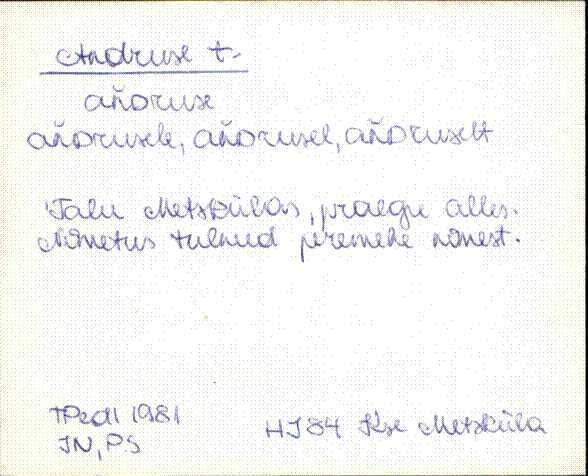 Andruse t.
añdruse
añdrusele, añdrusel, añdruselt
Talu Metskülas, praegu alles.
Nimetus tulnud peremehe nimest.
TPedI 1981
IN, P.S
HJ 84 Kse Metsküla